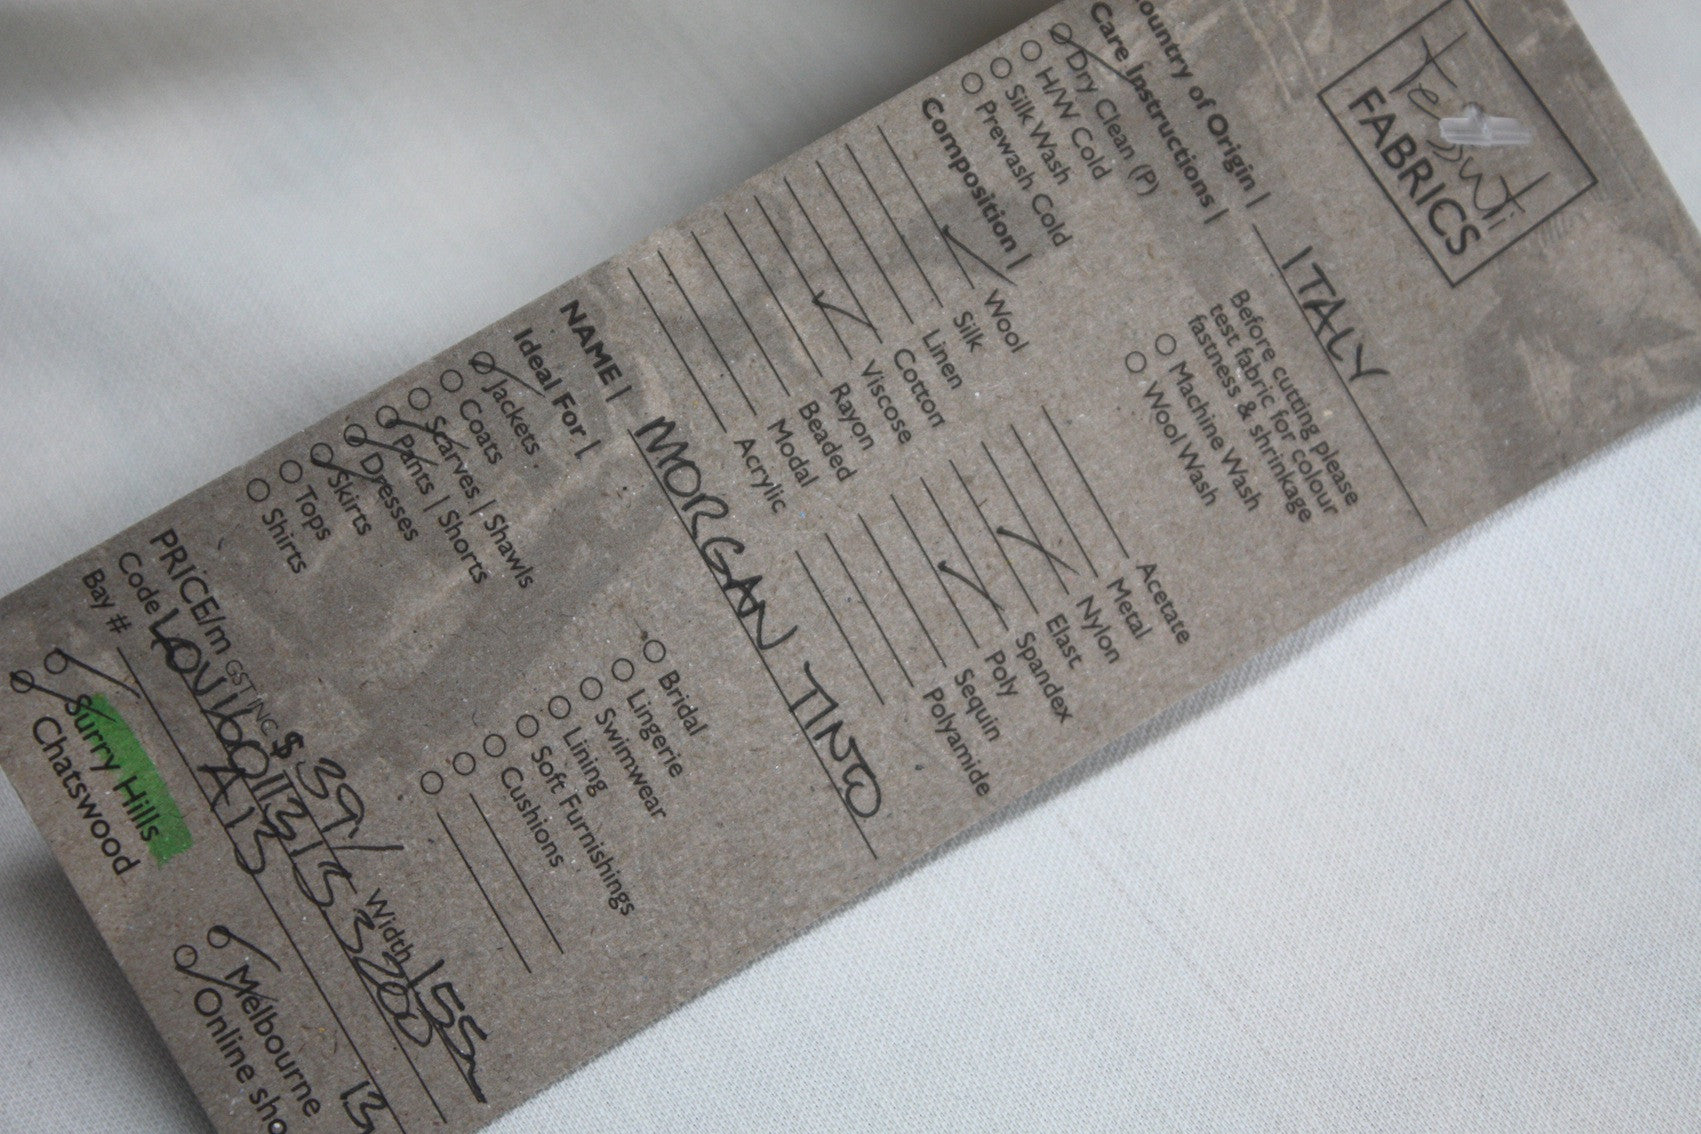 Tessuti
FABRICS
Country of Origin | ITALY
Care Instructions |
Before cutting please
test fabric for colour
fastness & shrinkage
Dry Clean (P)
H/W Cold
Silk Wash
Prewash Cold
Machine Wash
Wool Wash
Composition |
Wool
Silk
Linen
Cotton
Viscose
Rayon
Beaded
Modal
Acrylic
Acetate
Metal
Nylon
Elast
Spandex
Poly
Sequin
Polyamide
NAME | MORGAN TINTO
Ideal For |
Jackets
Coats
Scarves | Shawls
Pants | Shorts
Dresses
Skirts
Tops
Shirts
Bridal
Lingerie
Swimwear
Lining
Soft Furnishings
Cushions
PRICE/m GST INC $39/ Width 155
Code
Bay # A13 13
Surry Hills
Chatswood
Melbourne
Online sho